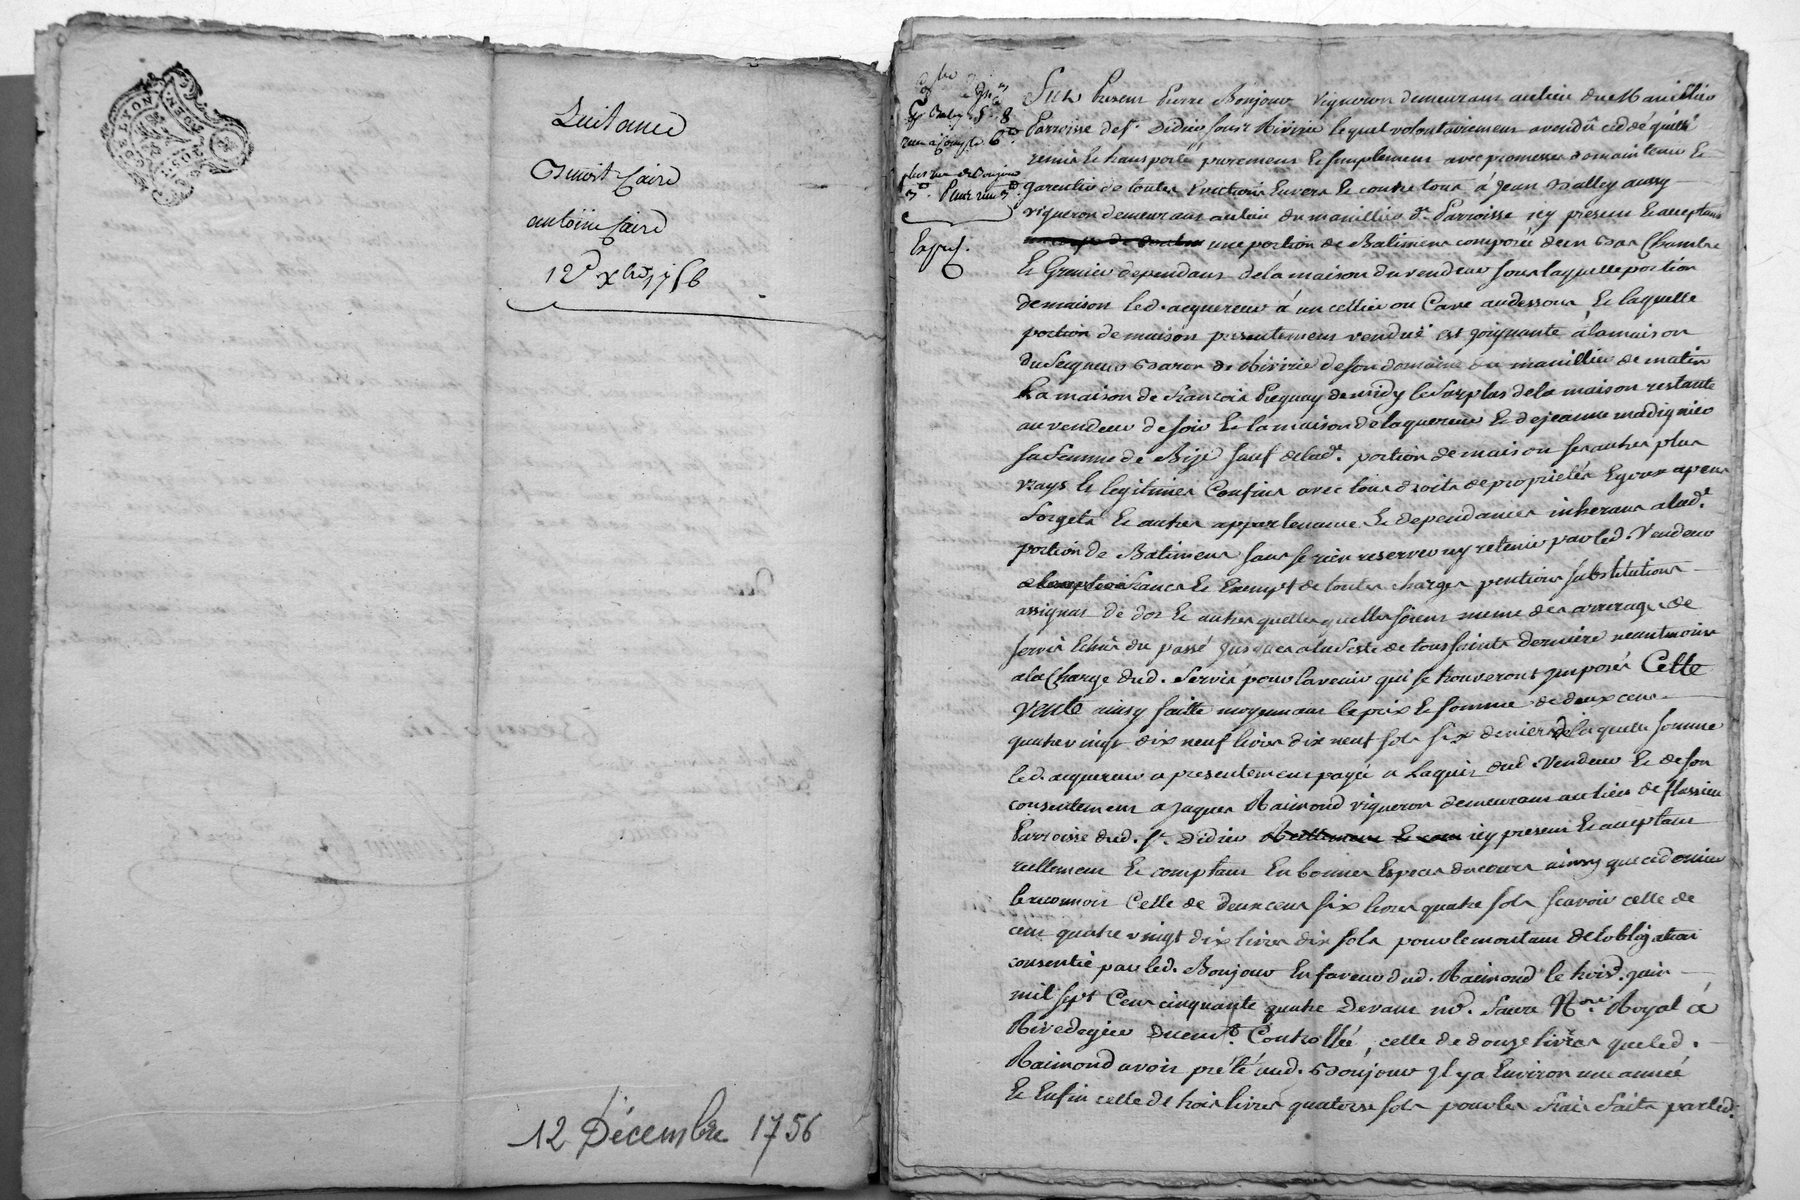 GEN. DE LYON
Quitance
Benoit Caire
antoine Caire
12e Xbre 1756
12 Décembre 1756
Expef.
Fut Present Pierre Bonjour vigneron demeurant au lieu du Manillier
Parroisse de St. Didier sous Rivirie lequel volontairement a vendû cedé quitté
remis et transporté purement et simplement avec promesse de maintenir et
garentir de toutes Evictions Envers et contre tous à Jean Valley aussy
vigneron demeurant au lieu du manillier de. Parroisse icy present et acceptant
une portion de Batiment composée d'un bas Chambre
et Grenier dependant de la maison du vendeur sous laquelle portion
de maison led. acquereur à un cellier ou Cave au dessous, et laquelle
portion de maison presentement venduë est joignante à la maison
du Seigneur Baron de Rivirie de son domaine du manillier de matin
La maison de François Preynay de midy le surplus de la maison restante
au vendeur de soir et la maison de laquereur et de jeanne madignier
sa femme de Bize sauf de lad. portion de maison ses autres plus
vrays et legitimes Confins avec tous droits de propriétés Egoux apens
forgets et autres appartenances et dependances inherans a lad.
portion de Batiment sans se rien reserver ny retenir par led. Vendeur
franche et Exempt de toutes charges pentions substitutions
assignat de dot et autres quelles quelles soient meme des arrerages de
servis Echus du passé jusques a la feste de tous saints derniere neantmoins
a la Charge dud. Servis pour l'avenir qui se trouveront imposés Cette
vente ainsy faitte moyennant le prix et somme de deux cent
quatre vingt dix neuf livres dix neuf sols six deniers de laquelle somme
led. acquereur a presentement payé a Laquit dud. Vendeur et de son
consentement a Jaques Raimond vigneron demeurant au lieu de flassieu
Parroisse dud. St. Didier icy present et acceptant
reellement et comptant En bonnes Especes du cours ainsy que ce dernier
le reconnoit Celle de Deux cent six livres quatre sols scavoir celle de
cent quatre vingt dix livres dix sols pour le montant de lobligation
consentie par led. Bonjour En faveur dud. Raimond le trois juin
mil sept Cent cinquante quatre Devant me. Faure Nre. Royal à
Rivedegier Duement Controllée, celle de douze livres que led.
Raimond avoit prété aud. Bonjour Il y a Environ une année
et Enfin celle de trois livres quatorze sols pour les frais faits par led.